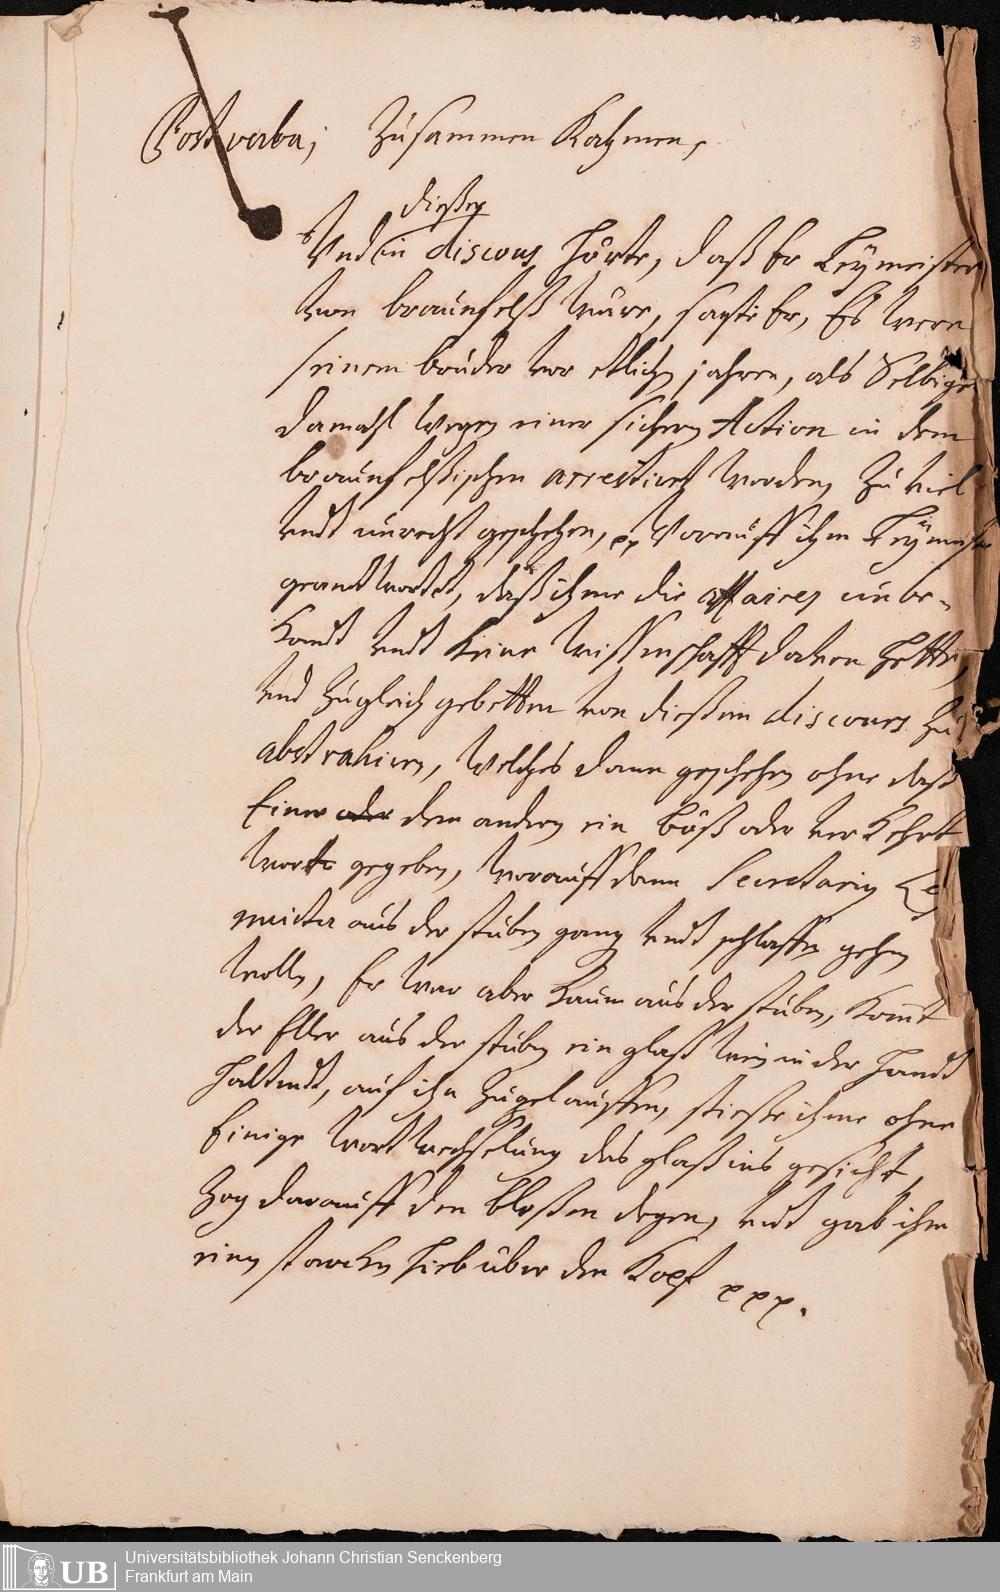 39
Post verba; Zusammen Kahmen,
dießer
Vnd in discours hörte, daß Er Leymeister
von braunfelß wäre, sagte Er, Es were
seinem bruder vor etlichen jahren, als Selbiger
damahl wegen einer sichern Action in dem
braunfelßischen arrestiret worden, zu viel
vndt unrecht geschehen, pp worauff ihm Leymeister
geantwortet, daß ihme die affaires unbe-
kandt vndt keine wissenschafft davon hette,
vnd zugleich gebetten von dießem discours zu
abstrahiren, welches dann geschehen ohne daß
Einer oder dem andern ein böß oder verkehrt
wort gegeben, worauff dann Secretarius Ley
meister aus der stuben gang vndt schlaffen gehen
wollen, Er war aber kaum aus der stuben, komt
der Eller aus der stuben ein glaß wein in der handt
haltendt, auf ihn zugelauffen, stieße ihme ohne
Einige wortwechselung das glaß ins gesicht,
zog darauff den bloßen degen, vndt gab ihm
einen starcken hieb über den Kopf ppp.
UB
Universitätsbibliothek Johann Christian Senckenberg
Frankfurt am Main